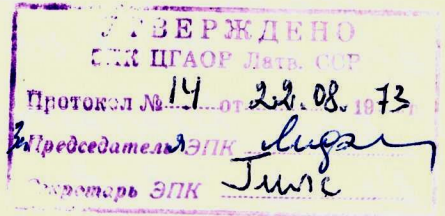 УТВЕРЖДЕНО
ЭПК ЦГАОР Латв. ССР
Протокол № 14 от 22.08.1973 г
з. Председателя ЭПК
Секретарь ЭПК